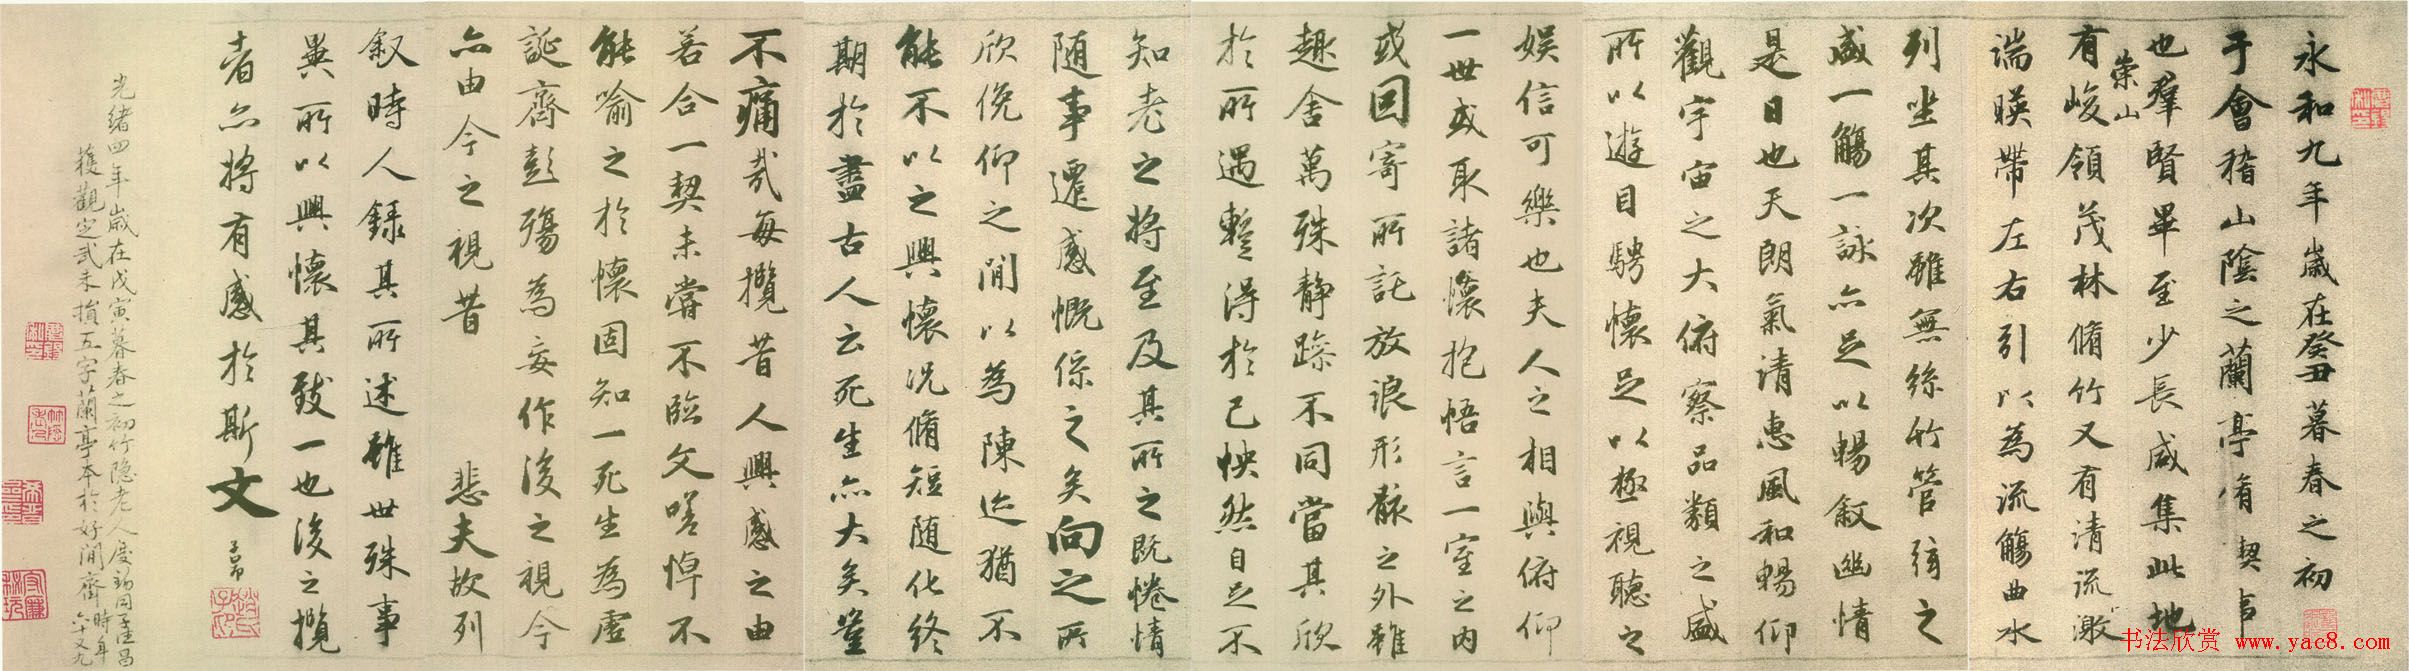 永和九年歲在癸丑暮春之初
于會稽山陰之蘭亭脩禊事
也羣賢畢至少長咸集此地
崇山
有峻領茂林脩竹又有清流激
湍暎帶左右引以為流觴曲水
列坐其次雖無絲竹管弦之
盛一觴一詠亦足以暢叙幽情
是日也天朗氣清惠風和暢仰
觀宇宙之大俯察品類之盛
所以遊目騁懷足以極視聽之
娛信可樂也夫人之相與俯仰
一世或取諸懷抱悟言一室之內
或因寄所託放浪形骸之外雖
趣舍萬殊靜躁不同當其欣
於所遇蹔得於己怏然自足不
知老之將至及其所之既惓情
随事遷感慨係之矣向之所
欣俛仰之閒以為陳迹猶不
能不以之興懷況脩短随化終
期於盡古人云死生亦大矣豈
不痛哉每攬昔人興感之由
若合一契未嘗不臨文嗟悼不
能喻之於懷固知一死生為虛
誕齊彭殤為妄作後之視今
亦由今之視昔 悲夫故列
叙時人錄其所述雖世殊事
異所以興懷其致一也後之攬
者亦將有感於斯文 子昂
光緒四年歲在戊寅暮春之初竹隱老人
獲觀定武未損五字蘭亭本於好閒齋 時年
六十又九
书法欣赏 www.yac8.com